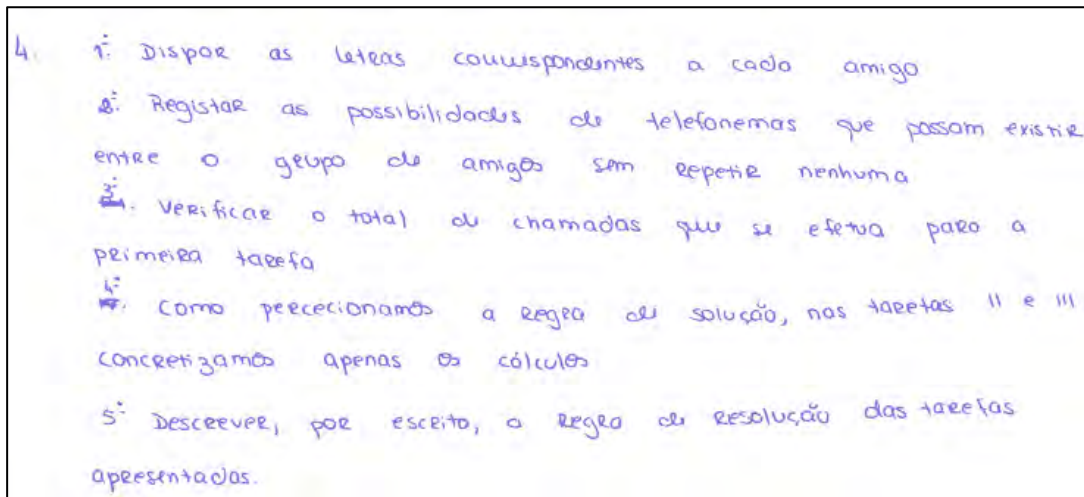 4. 1º: Dispor as letras correspondentes a cada amigo
2º: Registar as possibilidades de telefonemas que possam existir
entre o grupo de amigos sem repetir nenhuma
3º. Verificar o total de chamadas que se efetua para a
primeira tarefa
4º. Como percecionamos a regra de solução, nas tarefas II e III
concretizamos apenas os cálculos
5º Descrever, por escrito, a regra de resolução das tarefas
apresentadas.